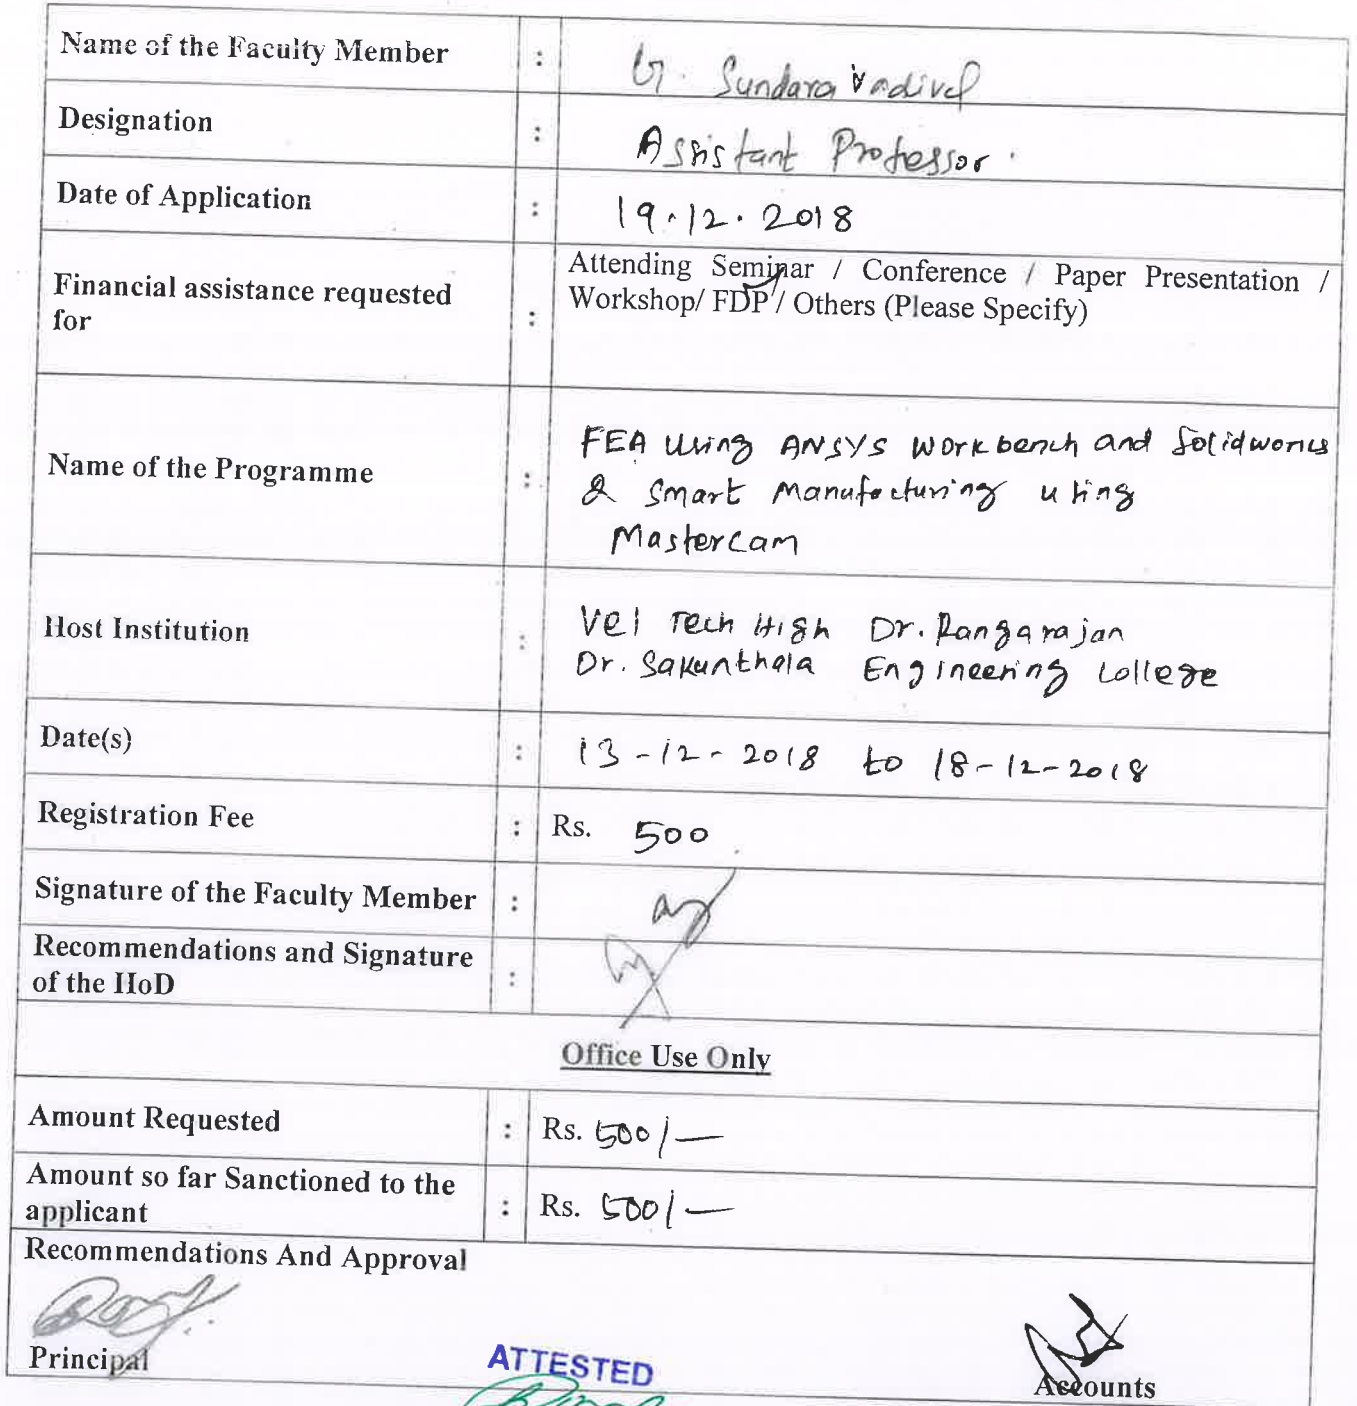 Name of the Faculty Member : G. Sundaravadivel
Designation : Assistant Professor.
Date of Application : 19.12.2018
Financial assistance requested for : Attending Seminar / Conference / Paper Presentation /
Workshop/ FDP / Others (Please Specify)
Name of the Programme : FEA Using ANSYS Workbench and Solidworks
& Smart Manufacturing using
Mastercam
Host Institution : Vel Tech High Dr. Rangarajan
Dr. Sakunthala Engineering College
Date(s) : 13-12-2018 to 18-12-2018
Registration Fee : Rs. 500
Signature of the Faculty Member :
Recommendations and Signature
of the HoD :
Office Use Only
Amount Requested : Rs. 500/-
Amount so far Sanctioned to the
applicant : Rs. 500/-
Recommendations And Approval
Principal
ATTESTED
Accounts